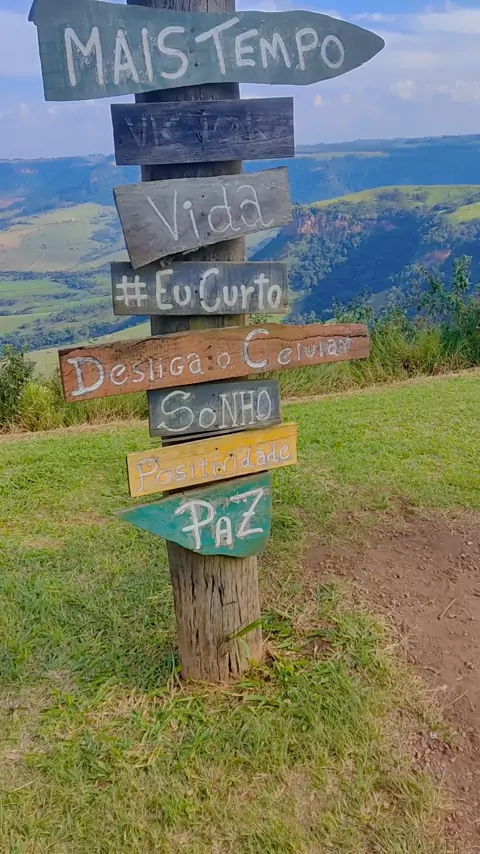 MAIS TEMPO
Vida
#EuCurto
Desliga o Celular
SoNHO
Positividade
PAZ